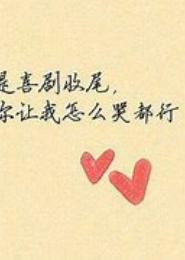 是喜剧收尾，
你让我怎么哭都行